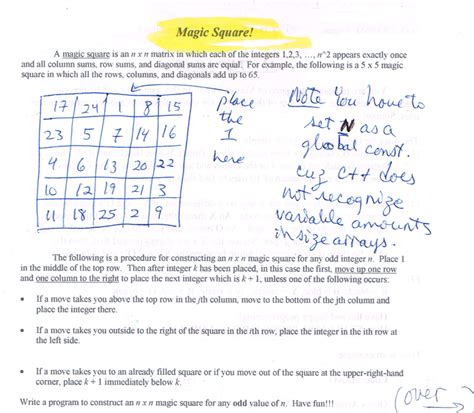 Magic Square!
A magic square is an n x n matrix in which each of the integers 1,2,3, ..., n^2 appears exactly once
and all column sums, row sums, and diagonal sums are equal. For example, the following is a 5 x 5 magic
square in which all the rows, columns, and diagonals add up to 65.
17 24 1 8 15
23 5 7 14 16
4 6 13 20 22
10 12 19 21 3
11 18 25 2 9
place
the
1
here
Note You have to
set N as a
global const.
cuz C++ does
not recognize
variable amounts
in size arrays.
The following is a procedure for constructing an n x n magic square for any odd integer n. Place 1
in the middle of the top row. Then after integer k has been placed, in this case the first, move up one row
and one column to the right to place the next integer which is k + 1, unless one of the following occurs:
• If a move takes you above the top row in the jth column, move to the bottom of the jth column and
place the integer there.
• If a move takes you outside to the right of the square in the ith row, place the integer in the ith row at
the left side.
• If a move takes you to an already filled square or if you move out of the square at the upper-right-hand
corner, place k + 1 immediately below k.
Write a program to construct an n x n magic square for any odd value of n. Have fun!!!
(over